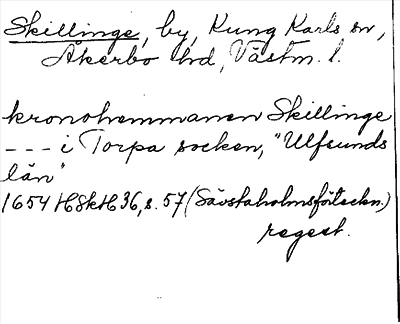 Skillinge, by, Kung Karls sn,
Åkerbo hd, Västm. l.
kronohemmanen Skillinge
--- i Torpa socken, "Ulfsunds
län"
1654 HSkH 36, s. 57 (Sävstaholmsförteckn.)
regest.